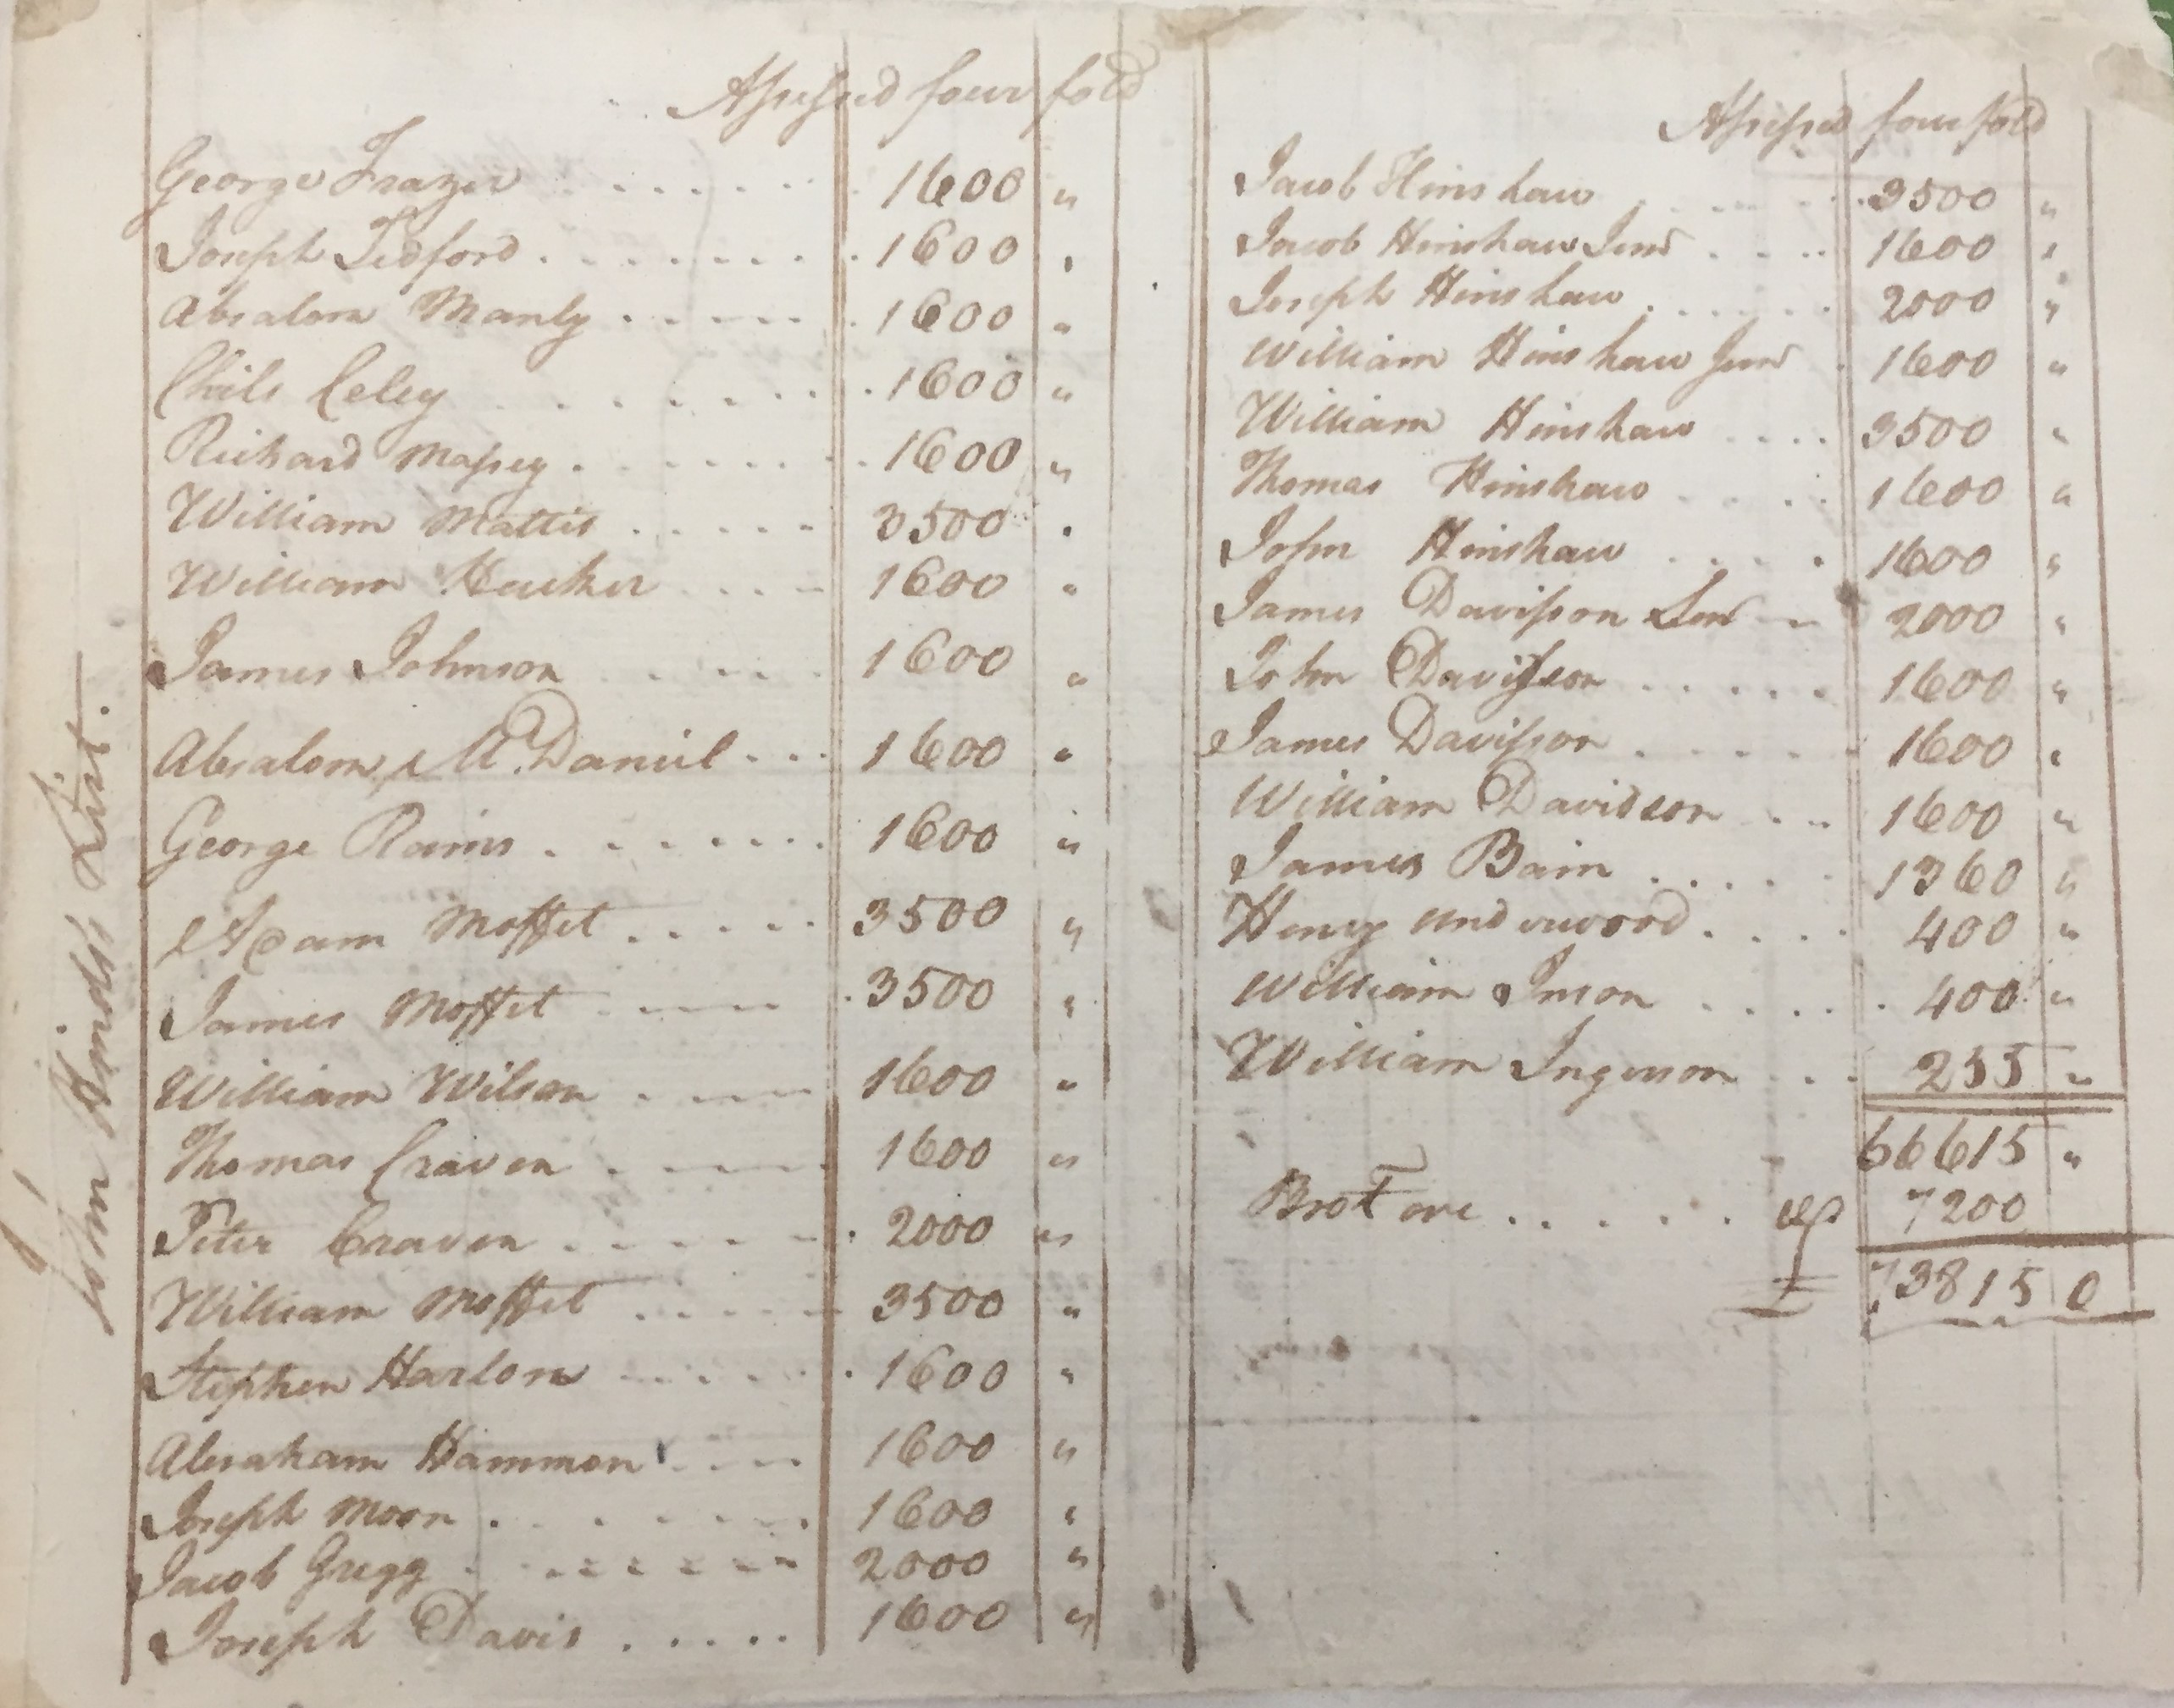 John Hinds's List.
Assessed four fold
George Frazer . . . . . . 1600 "
Joseph Tedford . . . . . . . 1600 "
Absalom Manly . . . . . 1600 "
Chils Celey . . . . . . . 1600 "
Richard Massey . . . . . . . 1600 "
William Mattis . . . . . 3500 "
William . . . . 1600 "
James Johnson . . . . 1600 "
Absalom McDaniel . . . 1600 "
George Rains . . . . . . . 1600 "
Adam Moffet . . . . . 3500 "
James Moffet . . . . 3500 "
William Wilson . . . . 1600 "
Thomas Craven . . . . . 1600 "
Peter Craven . . . . . . 2000 "
William Moffet . . . . . 3500 "
Stephen Harlon . . . . . 1600 "
Abraham Hammon . . . . 1600 "
Joseph Moon . . . . . . 1600 "
Jacob Gregg . . . . . . . 2000 "
Joseph Davis . . . . . 1600 "
Assessed four fold
Jacob Hinshaw . . . . . 3500 "
Jacob Hinshaw Junr . . . . 1600 "
Joseph Hinshaw . . . . . 2000 "
William Hinshaw Junr . 1600 "
William Hinshaw . . . . 3500 "
Thomas Hinshaw . . . . 1600 "
John Hinshaw . . . . 1600 "
James Davisson Senr . . 2000 "
John Davisson . . . . . 1600 "
James Davisson . . . . . 1600 "
William Davidson . . . 1600 "
James Bain . . . . . 1360 "
Henry underwood . . . . 400 "
William Inson . . . . . 400 "
William Ingerson . . . 255 "
66615 "
Brot over . . . . . 7200
£ 73815 0